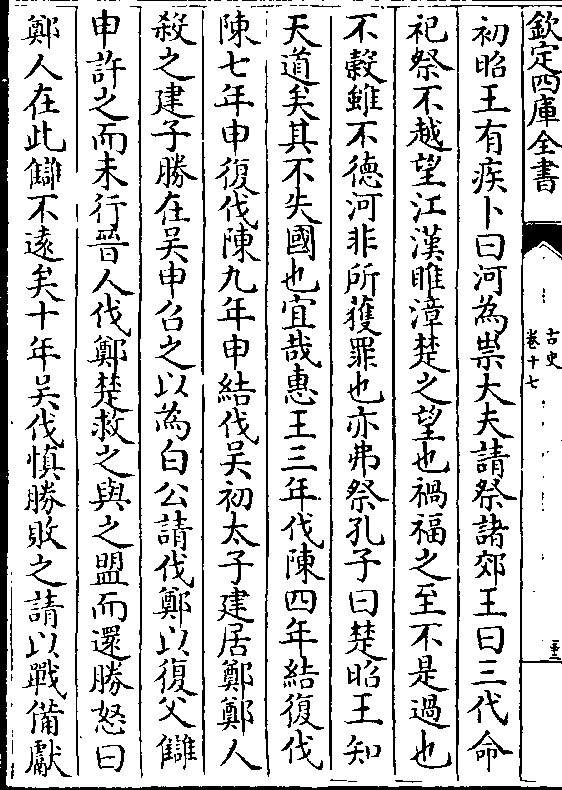 欽定四庫全書
古史
卷十七
初昭王有疾卜曰河為祟大夫請祭諸郊王曰三代命
祀祭不越望江漢睢漳楚之望也禍福之至不是過也
不穀雖不德河非所獲罪也亦弗祭孔子曰楚昭王知
天道矣其不失國也宜哉惠王三年伐陳四年結復伐
陳七年申復伐陳九年申結伐吴初太子建居鄭鄭人
殺之建子勝在吴申召之以為白公請伐鄭以復父讎
申許之而未行晉人伐鄭楚救之與之盟而還勝怒曰
鄭人在此讎不遠矣十年吴伐慎勝敗之請以戰備獻